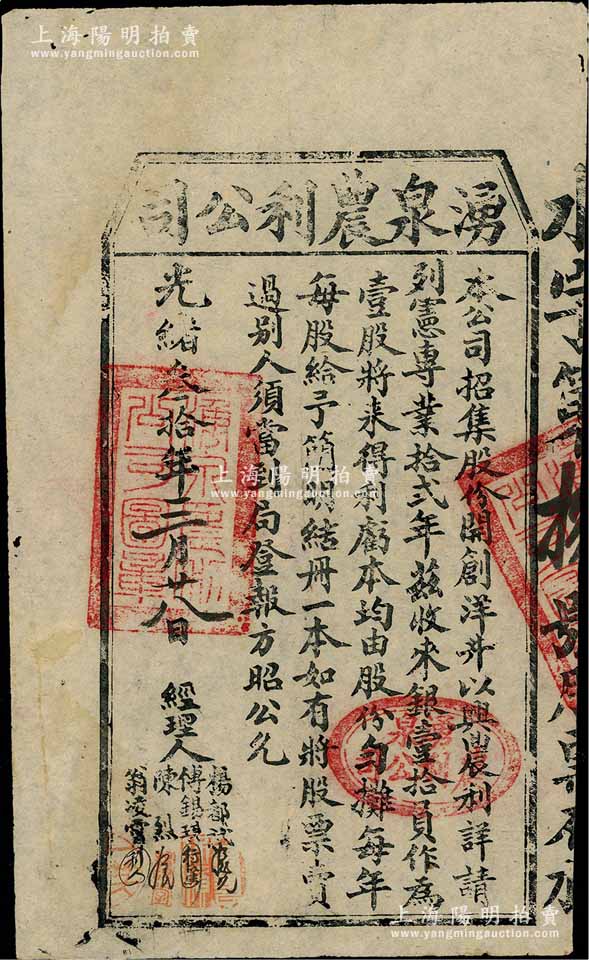 上海陽明拍賣
www.yangmingauction.com
上海陽明拍賣
www.yangmingauction.com
湧泉農利公司
本公司招集股份開創洋井以興農利詳請
列憲專業拾弍年兹收來銀壹拾員作為
壹股將來得利虧本均由股份勻攤每年
每股給予簡明結冊一本如有將股票賣
過别人須當到局登報方昭公允
光緒叁拾年三月廿八日
經理人
楊
傅錫
陳烈
翁凌霄
上海陽明拍賣
www.yangmingauction.com
上海陽明拍賣
www.yangmingauction.com